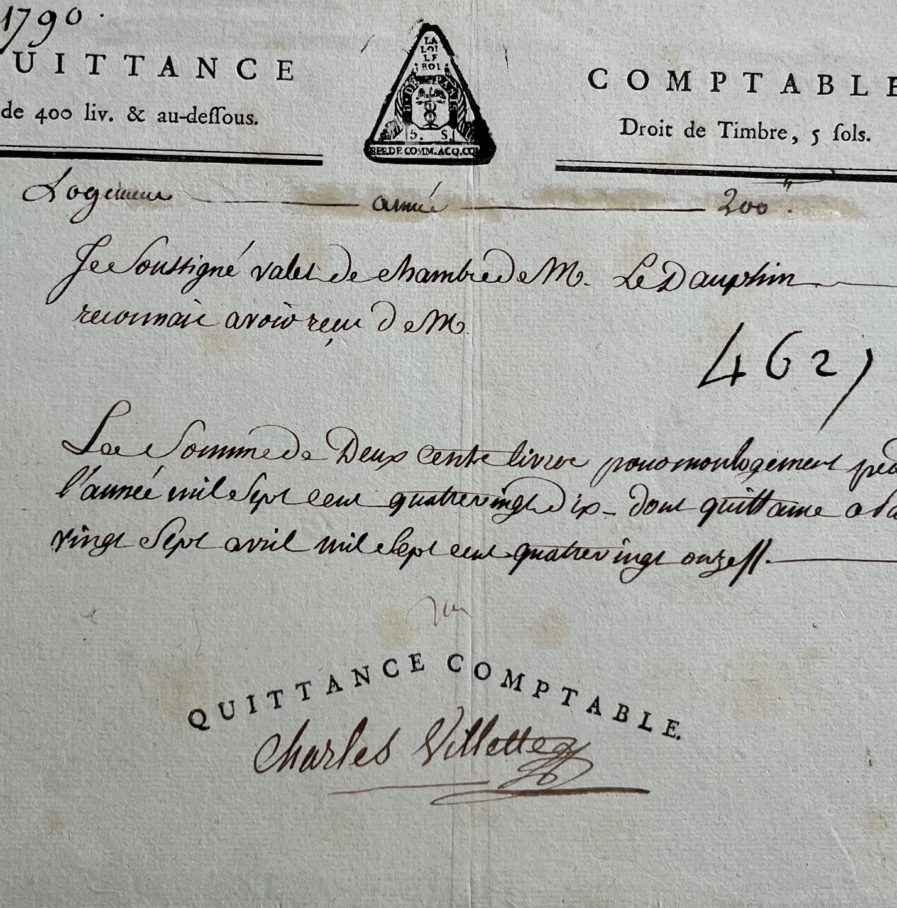 1790.
UITTANCE
COMPTABLE
de 400 liv. & au-deſſous.
Droit de Timbre, 5 ſols.
LA
LOI
LE
ROI
5. S.
COMM. ACQ. COM
Logement année 200"
Je Soussigné valet de chambre de M. Le Dauphin
reconnais avoir reçu De M.
462
La Somme de Deux cents livres pour mon logement
l'année mil Sept cent quatrevingt Dix dont quittance
vingt Sept avril mil Sept cent quatrevingt onze
QUITTANCE COMPTABLE.
Charles Villette